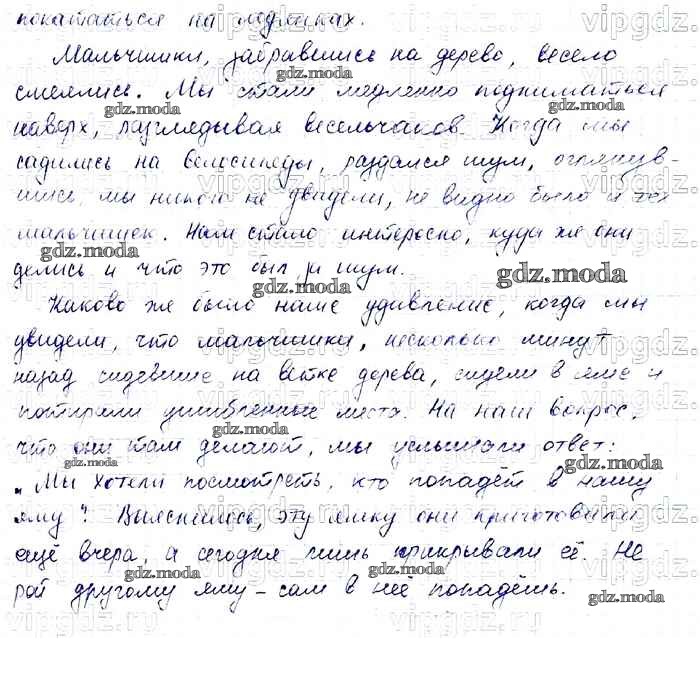 покататься на ледянках.
Мальчишки, забравшись на дерево, весело
смеялись. Мы стали медленно подниматься
наверх, разглядывая весельчаков. Когда мы
садились на велосипеды, раздался шум, оглянув-
шись, мы никого не увидели, не видно было и тех
мальчишек. Нам стало интересно, куда же они
делись и что это был за шум.
Каково же было наше удивление, когда мы
увидели, что мальчишки, несколько минут
назад сидевшие на ветке дерева, сидели в яме и
потирали ушибленные места. На наш вопрос,
что они там делают, мы услышали ответ:
„Мы хотели посмотреть, кто попадёт в нашу
яму? Выяснилось, эту ямку они приготовили
ещё вчера, а сегодня лишь прикрывали её. Не
рой другому яму – сам в неё попадёшь.
gdz.moda
gdz.moda
gdz.moda
gdz.moda
gdz.moda
gdz.moda
gdz.moda
gdz.moda
gdz.moda
gdz.moda
gdz.moda
gdz.moda